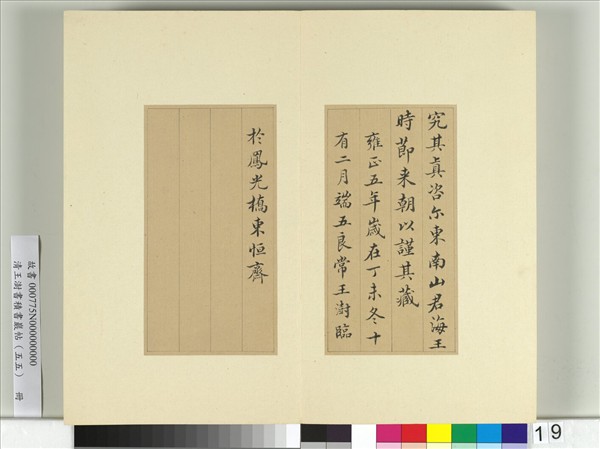 究其真咨尔東南山君海王
時節来朝以謹其藏
雍正五年歲在丁未冬十
有二月端五良常王澍臨
於鳳光橋東恒齋
故書 000775N000000000
清王澍書積書巖帖（五五） 冊
19